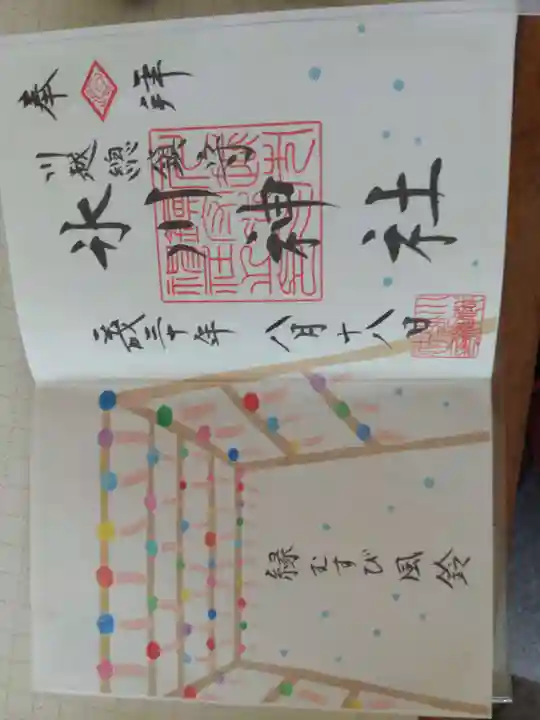 奉拝
川越總鎮守
氷川神社
歳三十年 八月十八日
縁むすび風鈴